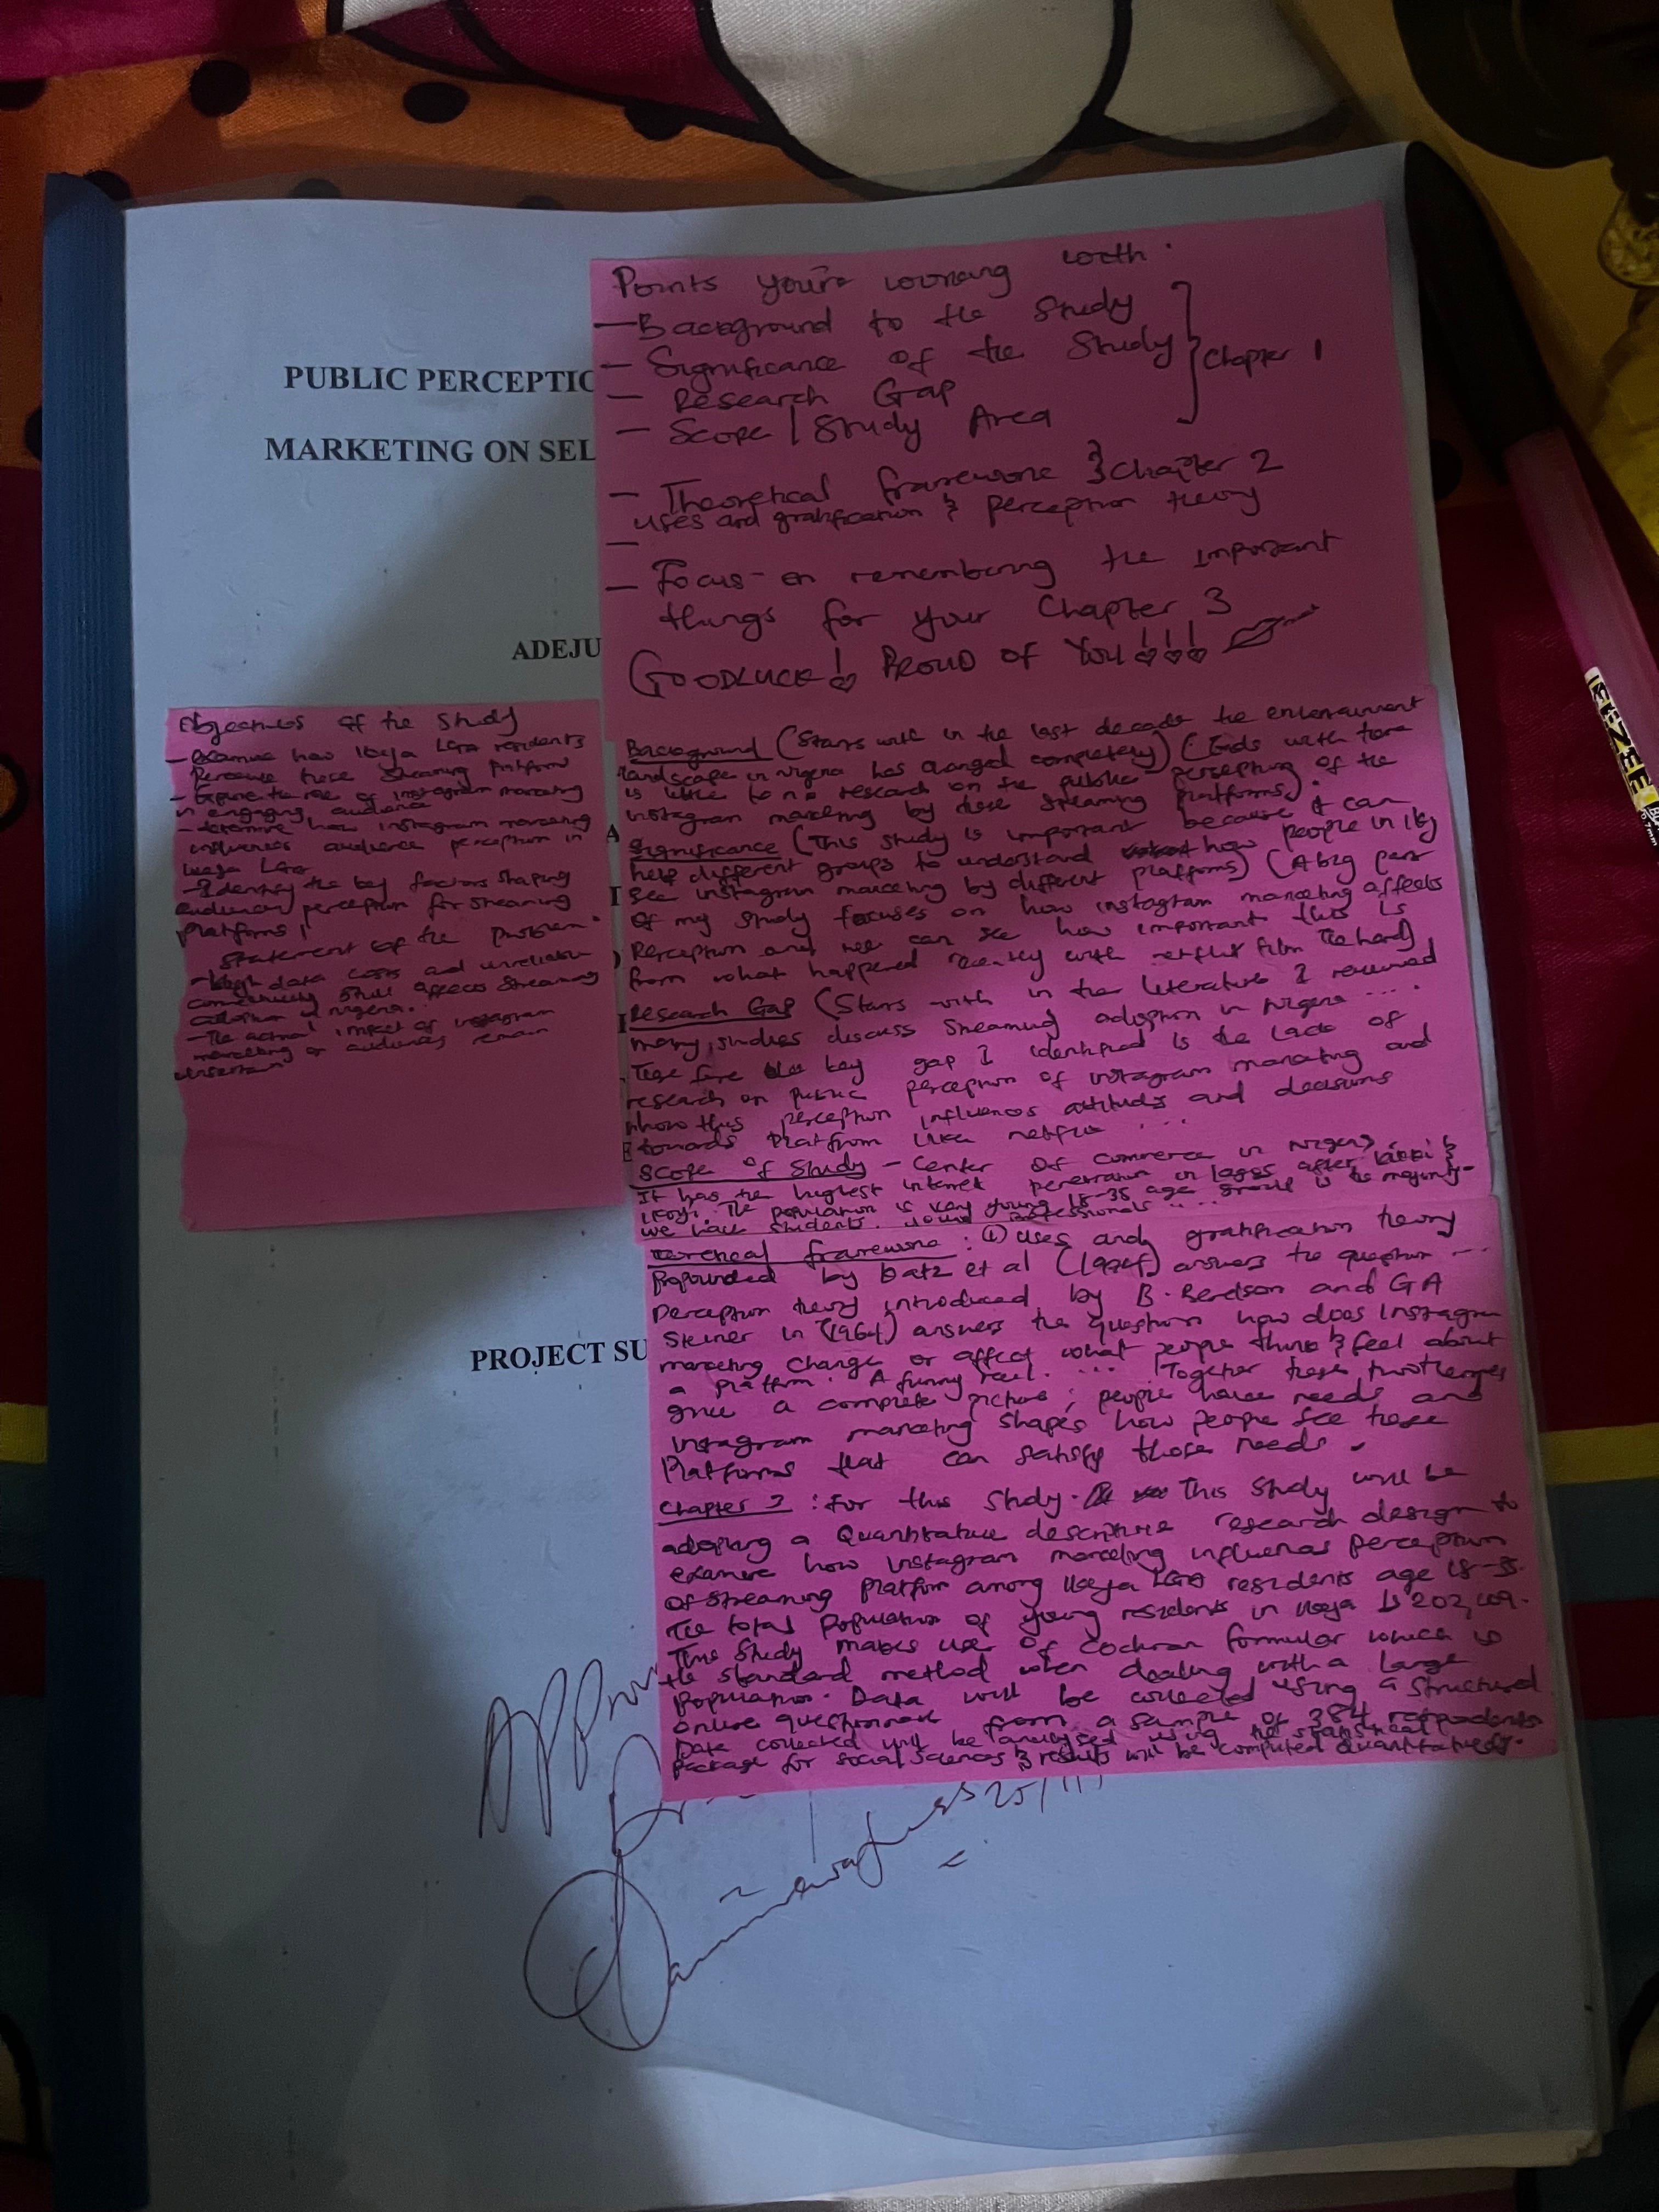 PUBLIC PERCEPTIO
MARKETING ON SEL
ADEJU
PROJECT SU
Points you're working with.
— Background to the Study
— Significance of the Study
— Research Gap
— Scope | Study Area
Chapter 1
— Theoretical framework } Chapter 2
uses and gratification & perception theory
—
— Focus on remembering the important
things for your Chapter 3
GOODLUCK! PROUD OF YOU!!!
Objectives of the Study
— Examine how Ikeja LGA residents
perceive these streaming platform
— Explore the role of instagram marketing
in engaging audience
— determine how instagram marketing
influences audience perception in
Ikeja LGA
— Identify the key factors shaping
audience perception for streaming
platforms
Statement of the problem
— High data costs and unreliable
connectivity still affects streaming
adoption in nigeria.
— The actual impact of instagram
marketing on audiences remain
uncertain
Background (Starts with in the last decade the entertainment
landscape in nigeria has changed completely) (Ends with there
is little to no research on the public perception of the
instagram marketing by these streaming platforms).
Significance (This study is important because it can
help different groups to understand how people in Ikj
see instagram marketing by different platforms) (A big part
of my study focuses on how instagram marketing affects
perception and we can see how important this is
from what happened recently with netflix film The herd)
Research Gap (Starts with in the literature I reviewed
many studies discuss streaming adoption in nigeria ....
There fore the key gap I identified is the lack of
research on public perception of instagram marketing and
how this perception influences attitudes and decisions
towards platform like netflix ...
Scope of Study — Center of commerce in Nigeria,
It has the highest internet penetration in lagos after &
Ikoyi. The population is very young 18-35 age group is the majority-
we have students, young professionals ....
Theoretical framework: (1) Uses and gratification theory
propounded by Katz et al (1974) answers the question ...
perception theory introduced by B. Berelson and GA
Steiner in (1964) answers the question how does Instagram
marketing change or affect what people think & feel about
a platform. A funny reel. ... Together these two theories
give a complete picture; people have needs and
instagram marketing shapes how people see these
platforms that can satisfy those needs.
Chapter 3: For this study. This study will be
adopting a Quantitative descriptive research design to
examine how instagram marketing influences perception
of streaming platform among Ikeja LGA residents age 18-35.
The total population of young residents in Ikeja is 202,609.
This study makes use of cochran formular which is
the standard method when dealing with a large
population. Data will be collected using a structured
online questionnaire from a sample of 384 respondents
Data collected will be analysed using the statistical
package for social sciences & results will be computed quantitatively.
25/11/